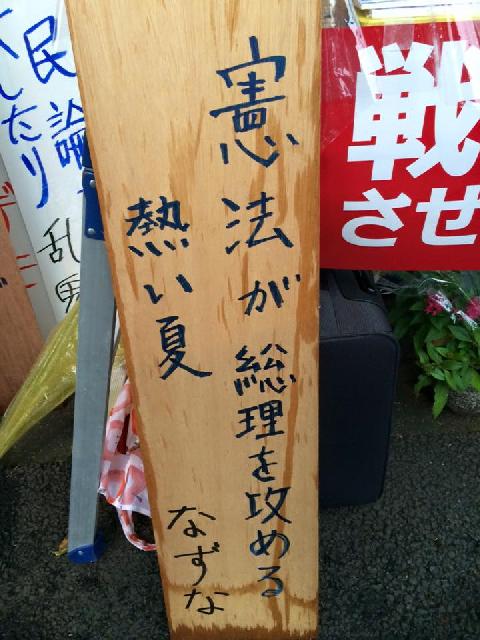 憲法が総理を攻める
熱い夏
なずな
戦
させ
民論
したり
乱